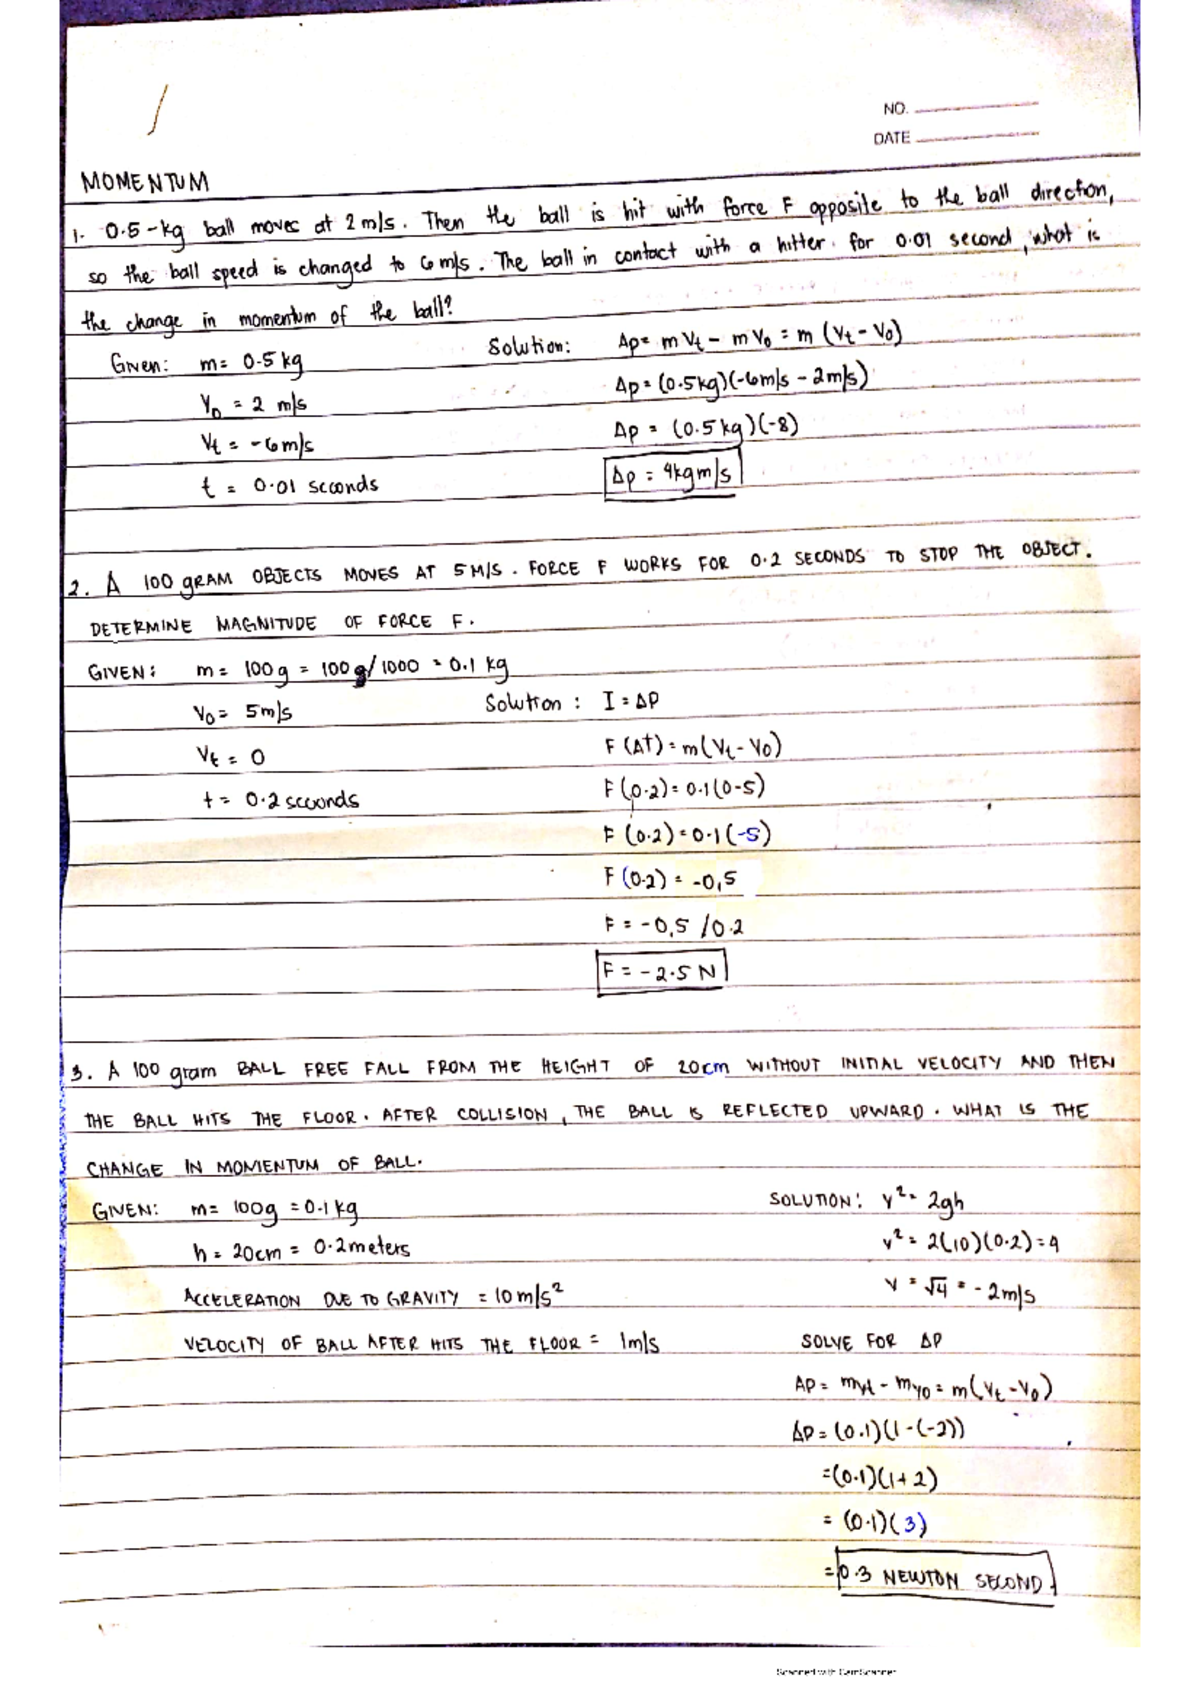 NO.
DATE
MOMENTUM
1. 0.5-kg ball moves at 2 m/s. Then the ball is hit with force F opposite to the ball direction,
so the ball speed is changed to 6 m/s. The ball in contact with a hitter for 0.01 second, what is
the change in momentum of the ball?
Given: m= 0.5 kg
V₀ = 2 m/s
Vt = -6 m/s
t = 0.01 seconds
Solution: Δp= m Vt - m V₀ = m (Vt - V₀)
Δp = (0.5kg)(-6m/s - 2m/s)
Δp = (0.5 kg)(-8)
Δp = 4kg m/s
2. A 100 gRAM OBJECTS MOVES AT 5 M/S. FORCE F WORKS FOR 0.2 SECONDS TO STOP THE OBJECT.
DETERMINE MAGNITUDE OF FORCE F.
GIVEN: m= 100g = 100g/1000 = 0.1 kg
V₀= 5m/s
Vt = 0
t = 0.2 seconds
Solution: I = ΔP
F (Δt) = m(Vt - V₀)
F (0.2) = 0.1(0-5)
F (0.2) = 0.1(-5)
F (0.2) = -0,5
F = -0,5 /0.2
F = -2.5 N
3. A 100 gram BALL FREE FALL FROM THE HEIGHT OF 20cm WITHOUT INITIAL VELOCITY AND THEN
THE BALL HITS THE FLOOR. AFTER COLLISION, THE BALL IS REFLECTED UPWARD. WHAT IS THE
CHANGE IN MOMENTUM OF BALL.
GIVEN: m= 100g = 0.1 kg
h = 20cm = 0.2 meters
ACCELERATION DUE TO GRAVITY = 10 m/s²
VELOCITY OF BALL AFTER HITS THE FLOOR = 1m/s
SOLUTION: v² = 2gh
v² = 2(10)(0.2) = 4
v = √4 = -2m/s
SOLVE FOR ΔP
ΔP = mvt - mv₀ = m(Vt - V₀)
ΔP = (0.1)(1-(-2))
=(0.1)(1+2)
= (0.1)(3)
=0.3 NEWTON SECOND
Scanned with CamScanner